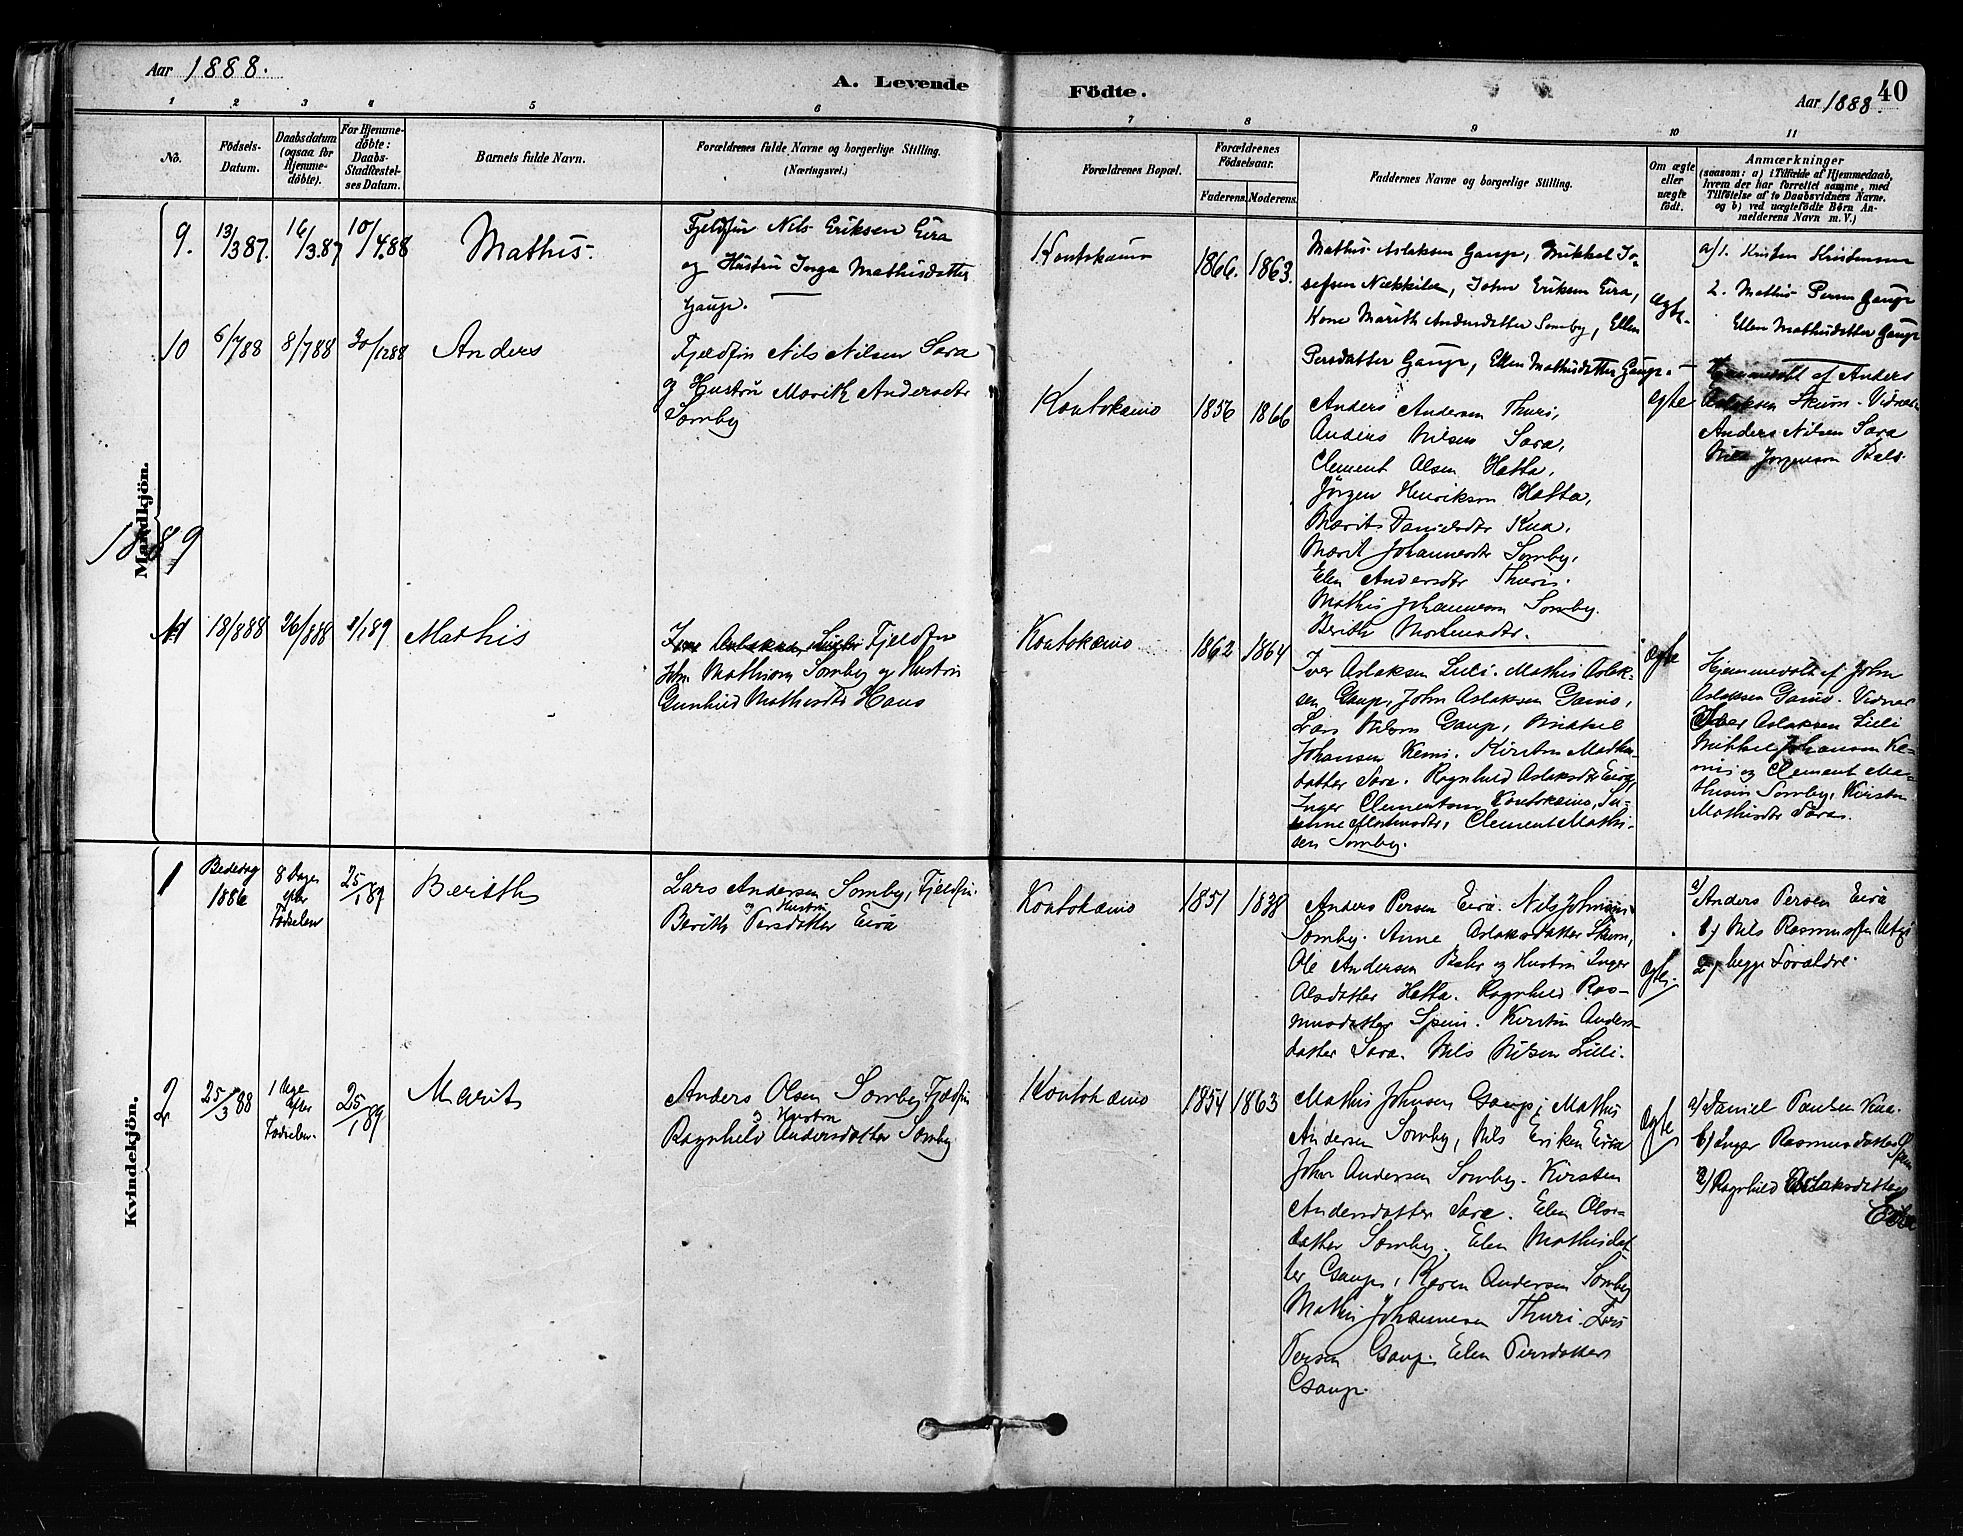 Aar 1888.
A. Levende
Födte.
40
Aar 1888
1 2 3 4 5 6 7 8 9 10 11
No.
Födsels-
Datum.
Daabsdatum
(ogsaa for
Hjemme-
döbte).
For Hjemme-
döbte:
Daabs-
Stadfæstel-
ses Datum.
Barnets fulde Navn.
Forældrenes fulde Navne og borgerlige Stilling.
(Næringsvei.)
Forældrenes Bopæl.
Forældrenes
Födselsaar.
Faderens. Moderens.
Faddernes Navne og borgerlige Stilling.
Om ægte
eller
uægte
födt.
Anmærkninger
(saasom: a) i Tilfælde af Hjemmedaab,
hvem der har forrettet samme, med
Tilföielse af to Daabsvidners Navne.
og b) ved uægtefödte Börn An-
melderens Navn m. V.)
Mandkjön.
1889
9. 13/3 87. 16/3.87 10/4.88 Mathis.
Fjeldfin Nils Eriksen Eira
og Hustru Inga Mathisdatter
Gaup.
Koutokeino
1866. 1863.
Mathis Aslaksen Gaup, Mikkel Jo-
sefsen Nækkila, John Eriksen Eira,
Kone Marith Andersdatter Somby, Ellen
Persdatter Gaup, Ellen Mathisdatter Gaup.
ægte.
a/1. Kristen Kristensen
2. Mathis Persen Gaup
Ellen Mathisdatter Gaup
10 6/7 88 8/7 88 30/12 88 Anders
Fjeldfin Nils Nilsen Sara
og Hustru Marith Andersdtr
Somby
Koutokeino
1856 1866
Anders Andersen Thuri,
Anders Nilsen Sara,
Clement Olsen Hatta,
Jörgen Henriksen Hatta,
Marit Danielsdtr Kua,
Marit Johannesdtr Somby,
Elen Andersdtr Thuri.
Mathis Johannesen Somby.
Berith Mortensdtr.
ægte
Hjemmedöbt af Anders
Aslaksen Skum. Vidner
Anders Nilsen Sara
Nils Jörgensen Bals.
11 18/8 88 26/8 88 1/1 89 Mathis
Iver Aslaksen Lieli Fjeldfin
John Mathisen Somby og Hustru
Gunhild Mathisdtr Haus
Koutokeino
1862 1864
Iver Aslaksen Lieli. Mathis Aslak-
sen Gaup, John Aslaksen Gaino,
Lars Nilsen Gaup, Mikkel
Johansen Kemi. Kirsten Mathis-
datter Sara. Ragnhild Aslaksdtr Eira,
Inger Clementsen Koutokeino, Su-
sanne Mortensdtr, Clement Mathi-
sen Somby.
ægte
Hjemmedöbt af John
Aslaksen Gaino. Vidner
Iver Aslaksen Lieli
Mikkel Johansen Ke-
mi og Clement Ma-
thisen Somby, Kirsten
Mathisdtr Sara.
Kvindekjön.
1 Bededag
1886
8 Dage
efter
Födselen
25/1 89 Berith
Lars Andersen Somby, Fjeldfin
og Hustru
Berith Persdatter Eira
Koutokeino
1851 1838
Anders Persen Eira. Nils Johnsen
Somby. Anne Aslaksdatter Skum,
Ole Andersen Bahr og Hustru Inger
Olsdatter Hatta. Ragnhild Ras-
musdatter Spein. Kirsten Anders-
datter Sara. Nils Nilsen Lieli.
ægte.
a) Anders Persen Eira
b) Nils Rasmussen Utsi
2) begge Forældre.
2 25/3 88
1 Uge
efter
Födselen.
25/1 89 Marit
Anders Olsen Somby Fjeldfin
og Hustru
Ragnhild Andersdatter Somby
Koutokeino
1854 1863
Mathis Johnsen Gaup; Mathis
Andersen Somby, Nils Eriksen Eira
John Andersen Somby. Kirsten
Andersdatter Sara. Elen Ols-
datter Somby. Elen Mathisdat-
ter Gaup, Karen Andersen Somby
Mathis Johannesen Thuri. Lars
Persen Gaup. Elen Persdatter
Gaup.
ægte
a) Daniel Paulsen Kua.
b) Inger Rasmusdatter Spein
2) Ragnhild Aslaksdatter
Eira